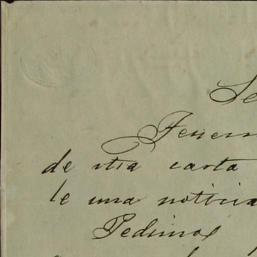 Se
Tenem
de vtra carta
le una noticia
Pedimos